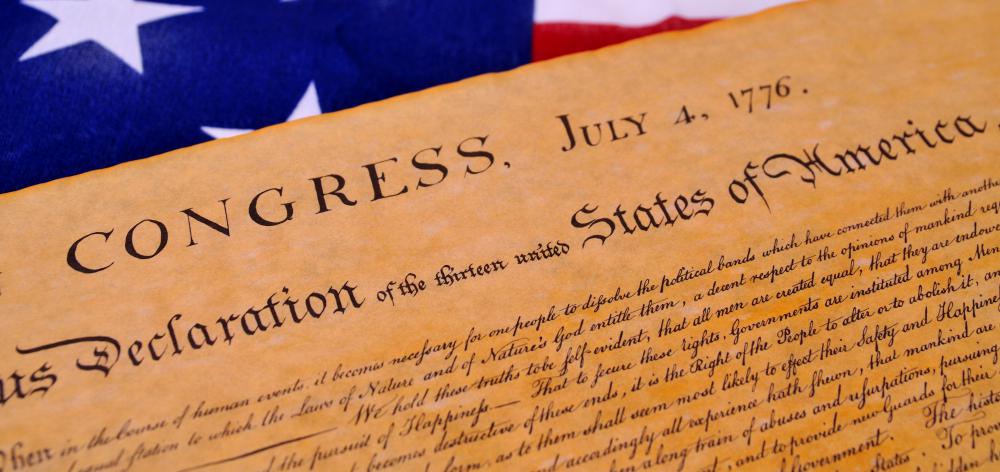 CONGRESS, JULY 4, 1776.
us Declaration of the thirteen united States of America,
hen in the Course of human events, it becomes necessary for one people to dissolve the political bands which have connected them with anothe
equal station to which the Laws of Nature and of Nature's God entitle them, a decent respect to the opinions of mankind req
We hold these truths to be self-evident, that all men are created equal, that they are endowe
the pursuit of Happiness.— That to secure these rights, Governments are instituted among Men
becomes destructive of these ends, it is the Right of the People to alter or to abolish it, an
form, as to them shall seem most likely to effect their Safety and Happine
accordingly all experience hath shewn, that mankind are
en a long train of abuses and usurpations, pursuing
, and to provide new Guards for their
Government. The histo
States To pro